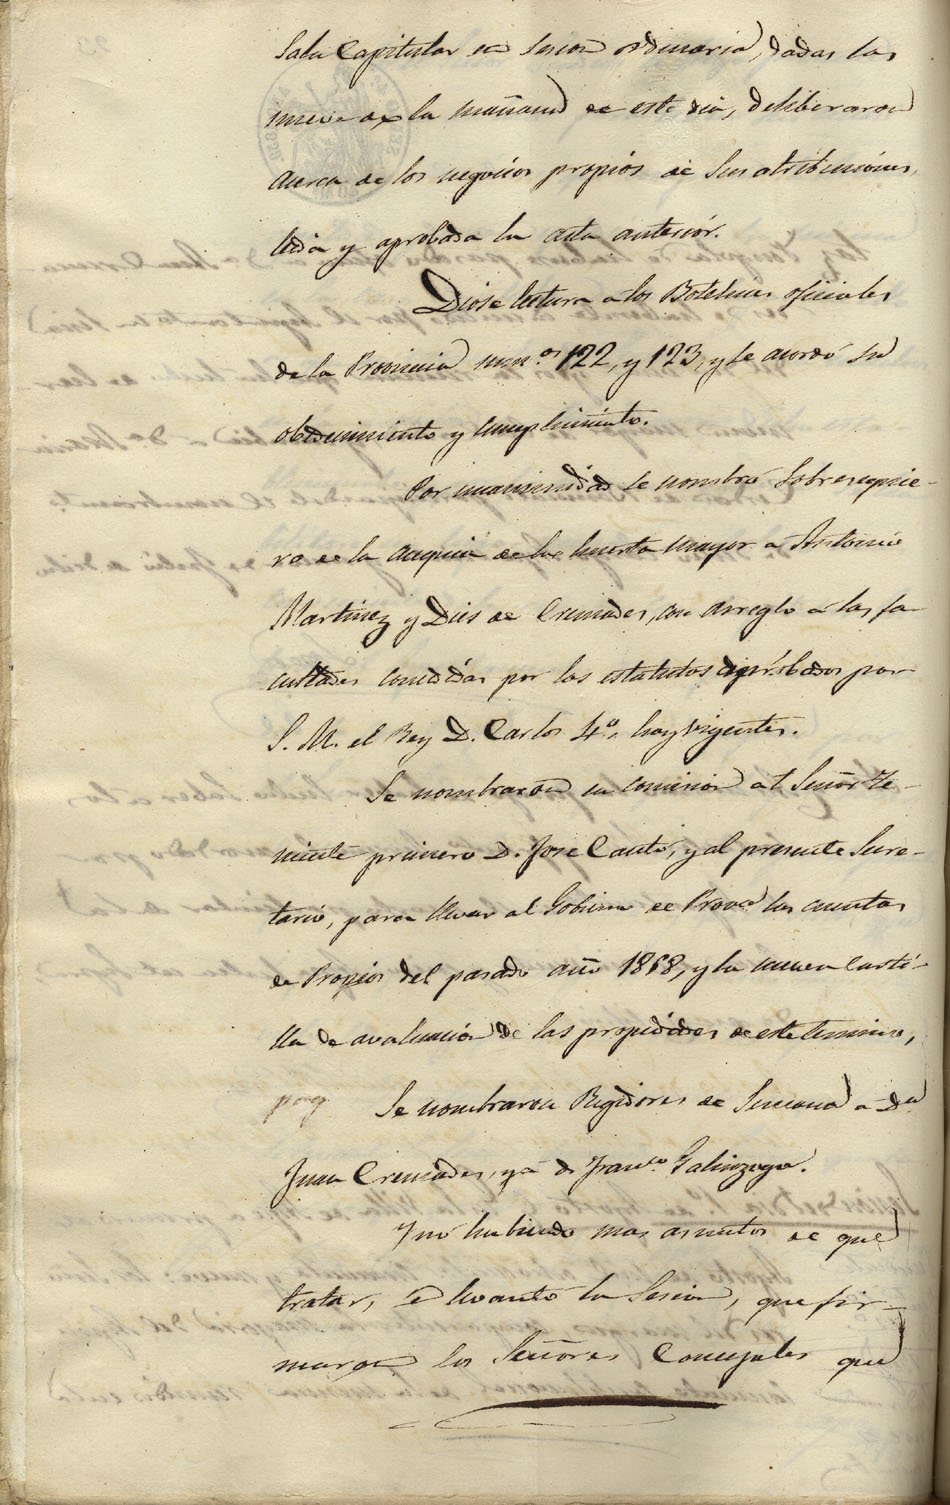 Sala Capitular en sesion ordinaria, dadas las
nueve de la mañana de este dia, deliberaron
acerca de los negocios propios de sus atribuciones,
leida y aprobada la acta anteriór.
Dióse lectura a los Boletines oficiales
de la Provincia num.os 122, y 123, y se acordó su
obedecimiento y cumplimiento.
Por unanimidad se nombró Sobreacequie-
ro de la acequia de la huerta mayor a Antonio
Martinez y Dies de Cremades, con arreglo a las fa-
cultades concedidas por los estatutos aprobados por
S. M. el Rey D. Carlos 4.o, hoy vigentes.
Se nombraron en comision al Señor Te-
niente primero D. Jose Cantó, y al presente Secre-
tario, para llevar al Gobierno de Prov.ca las cuentas
de Propios del pasado año 1858, y la nueva Carti-
lla de avaluacion de las propiedades de este termino,
Se nombraron Regidores de Semana a Dn
Juan Cremades, y a D. Fran.co Galinzoga.
Y no habiendo mas asuntos de que
tratar, se levantó la Sesion, que fir-
maron los Señores Concejales que